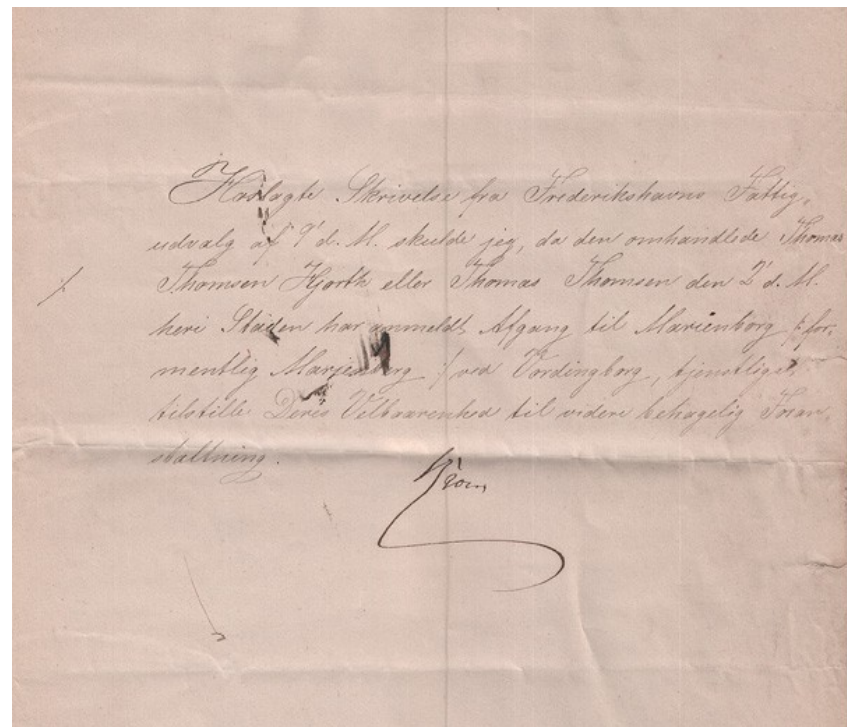 Hoslagte Skrivelse fra Frederikshavns Fattig-
udvalg af 9' d. M. skulde jeg, da den omhandlede Thomas
./. Thomsen Hjorth eller Thomas Thomsen den 2' d. M.
heri Staden har anmeldt Afgang til Marienborg /: for-
mentlig Marienberg :/ ved Vordingborg, tjenstligst
tilstille Deres Velbaarenhed til videre behagelig Foran-
staltning.